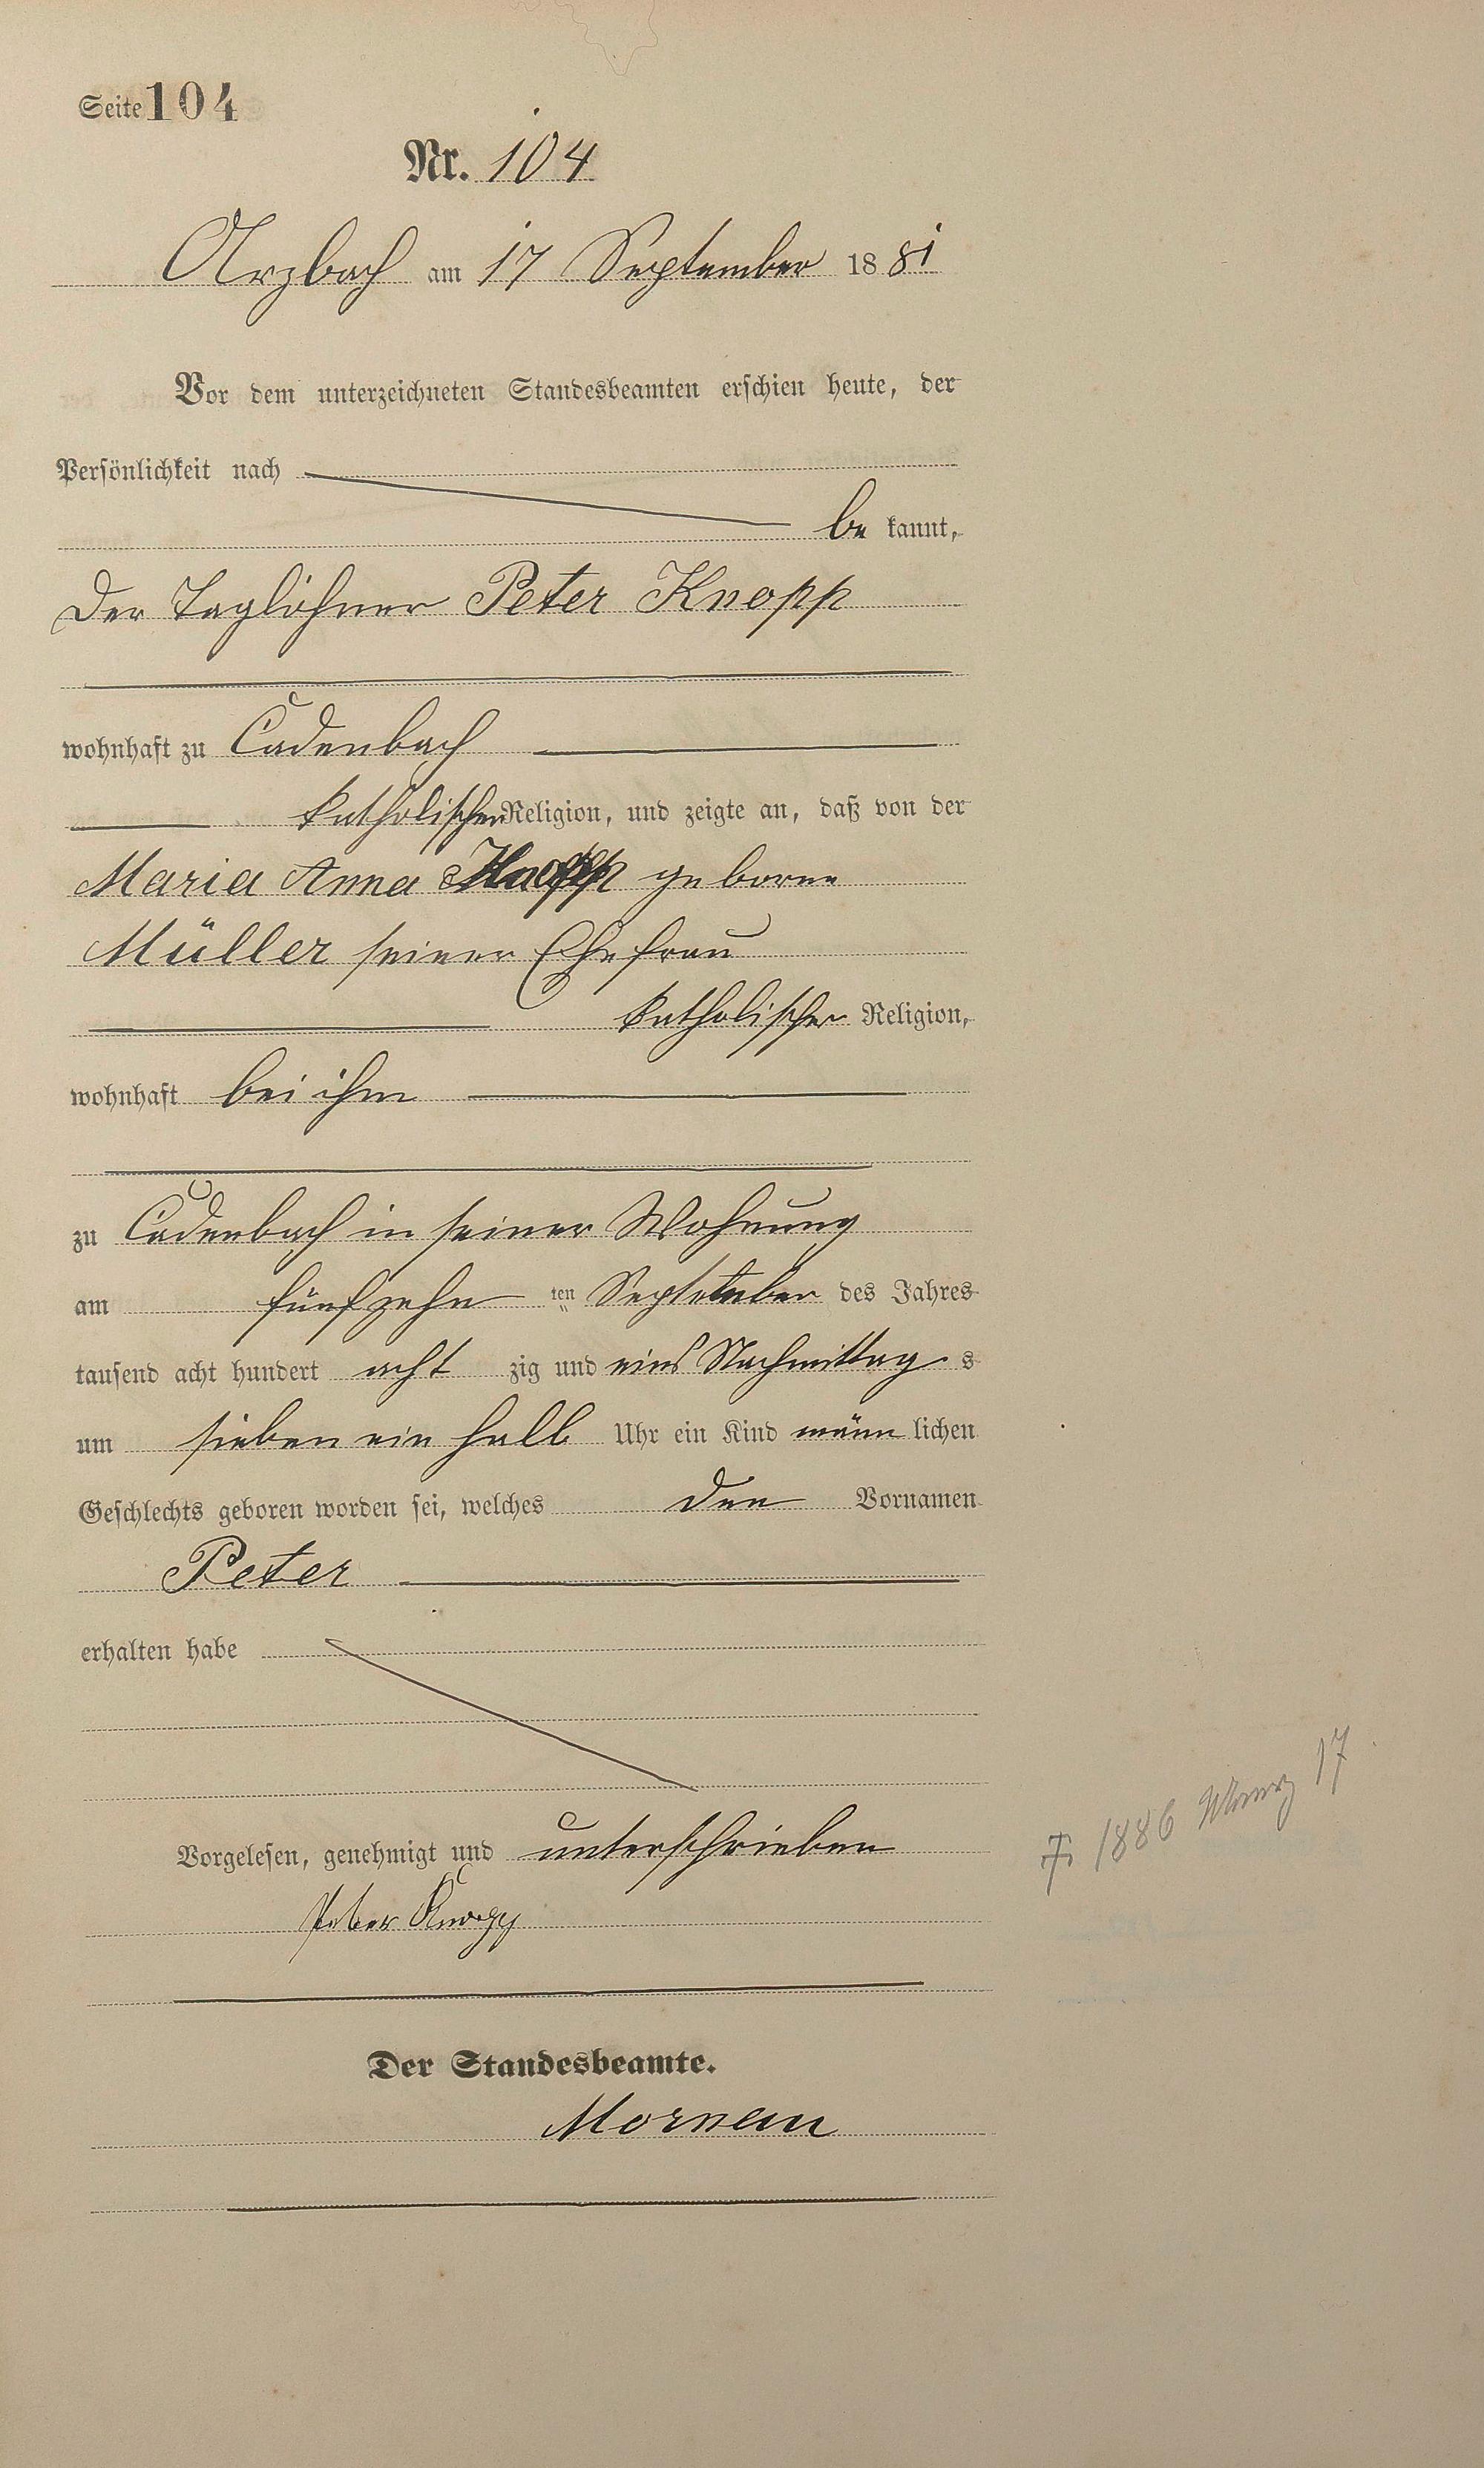 Seite 104
Nr. 104
Arzbach am 17 September 1881
Vor dem unterzeichneten Standesbeamten erschien heute, der
Persönlichkeit nach
be kannt,
der Taglöhner Peter Knopp
wohnhaft zu Cadenbach
katholischer Religion, und zeigte an, daß von der
Maria Anna Knopp geborne
Müller seiner Ehefrau
katholischer Religion,
wohnhaft bei ihm
zu Cadenbach in seiner Wohnung
am fünfzehn ten September des Jahres
tausend acht hundert acht zig und eins Nachmittag s
um sieben ein halb Uhr ein Kind männ lichen
Geschlechts geboren worden sei, welches den Vornamen
Peter
erhalten habe
Vorgelesen, genehmigt und unterschrieben
† 1886 März 17
Peter Knopp
Der Standesbeamte.